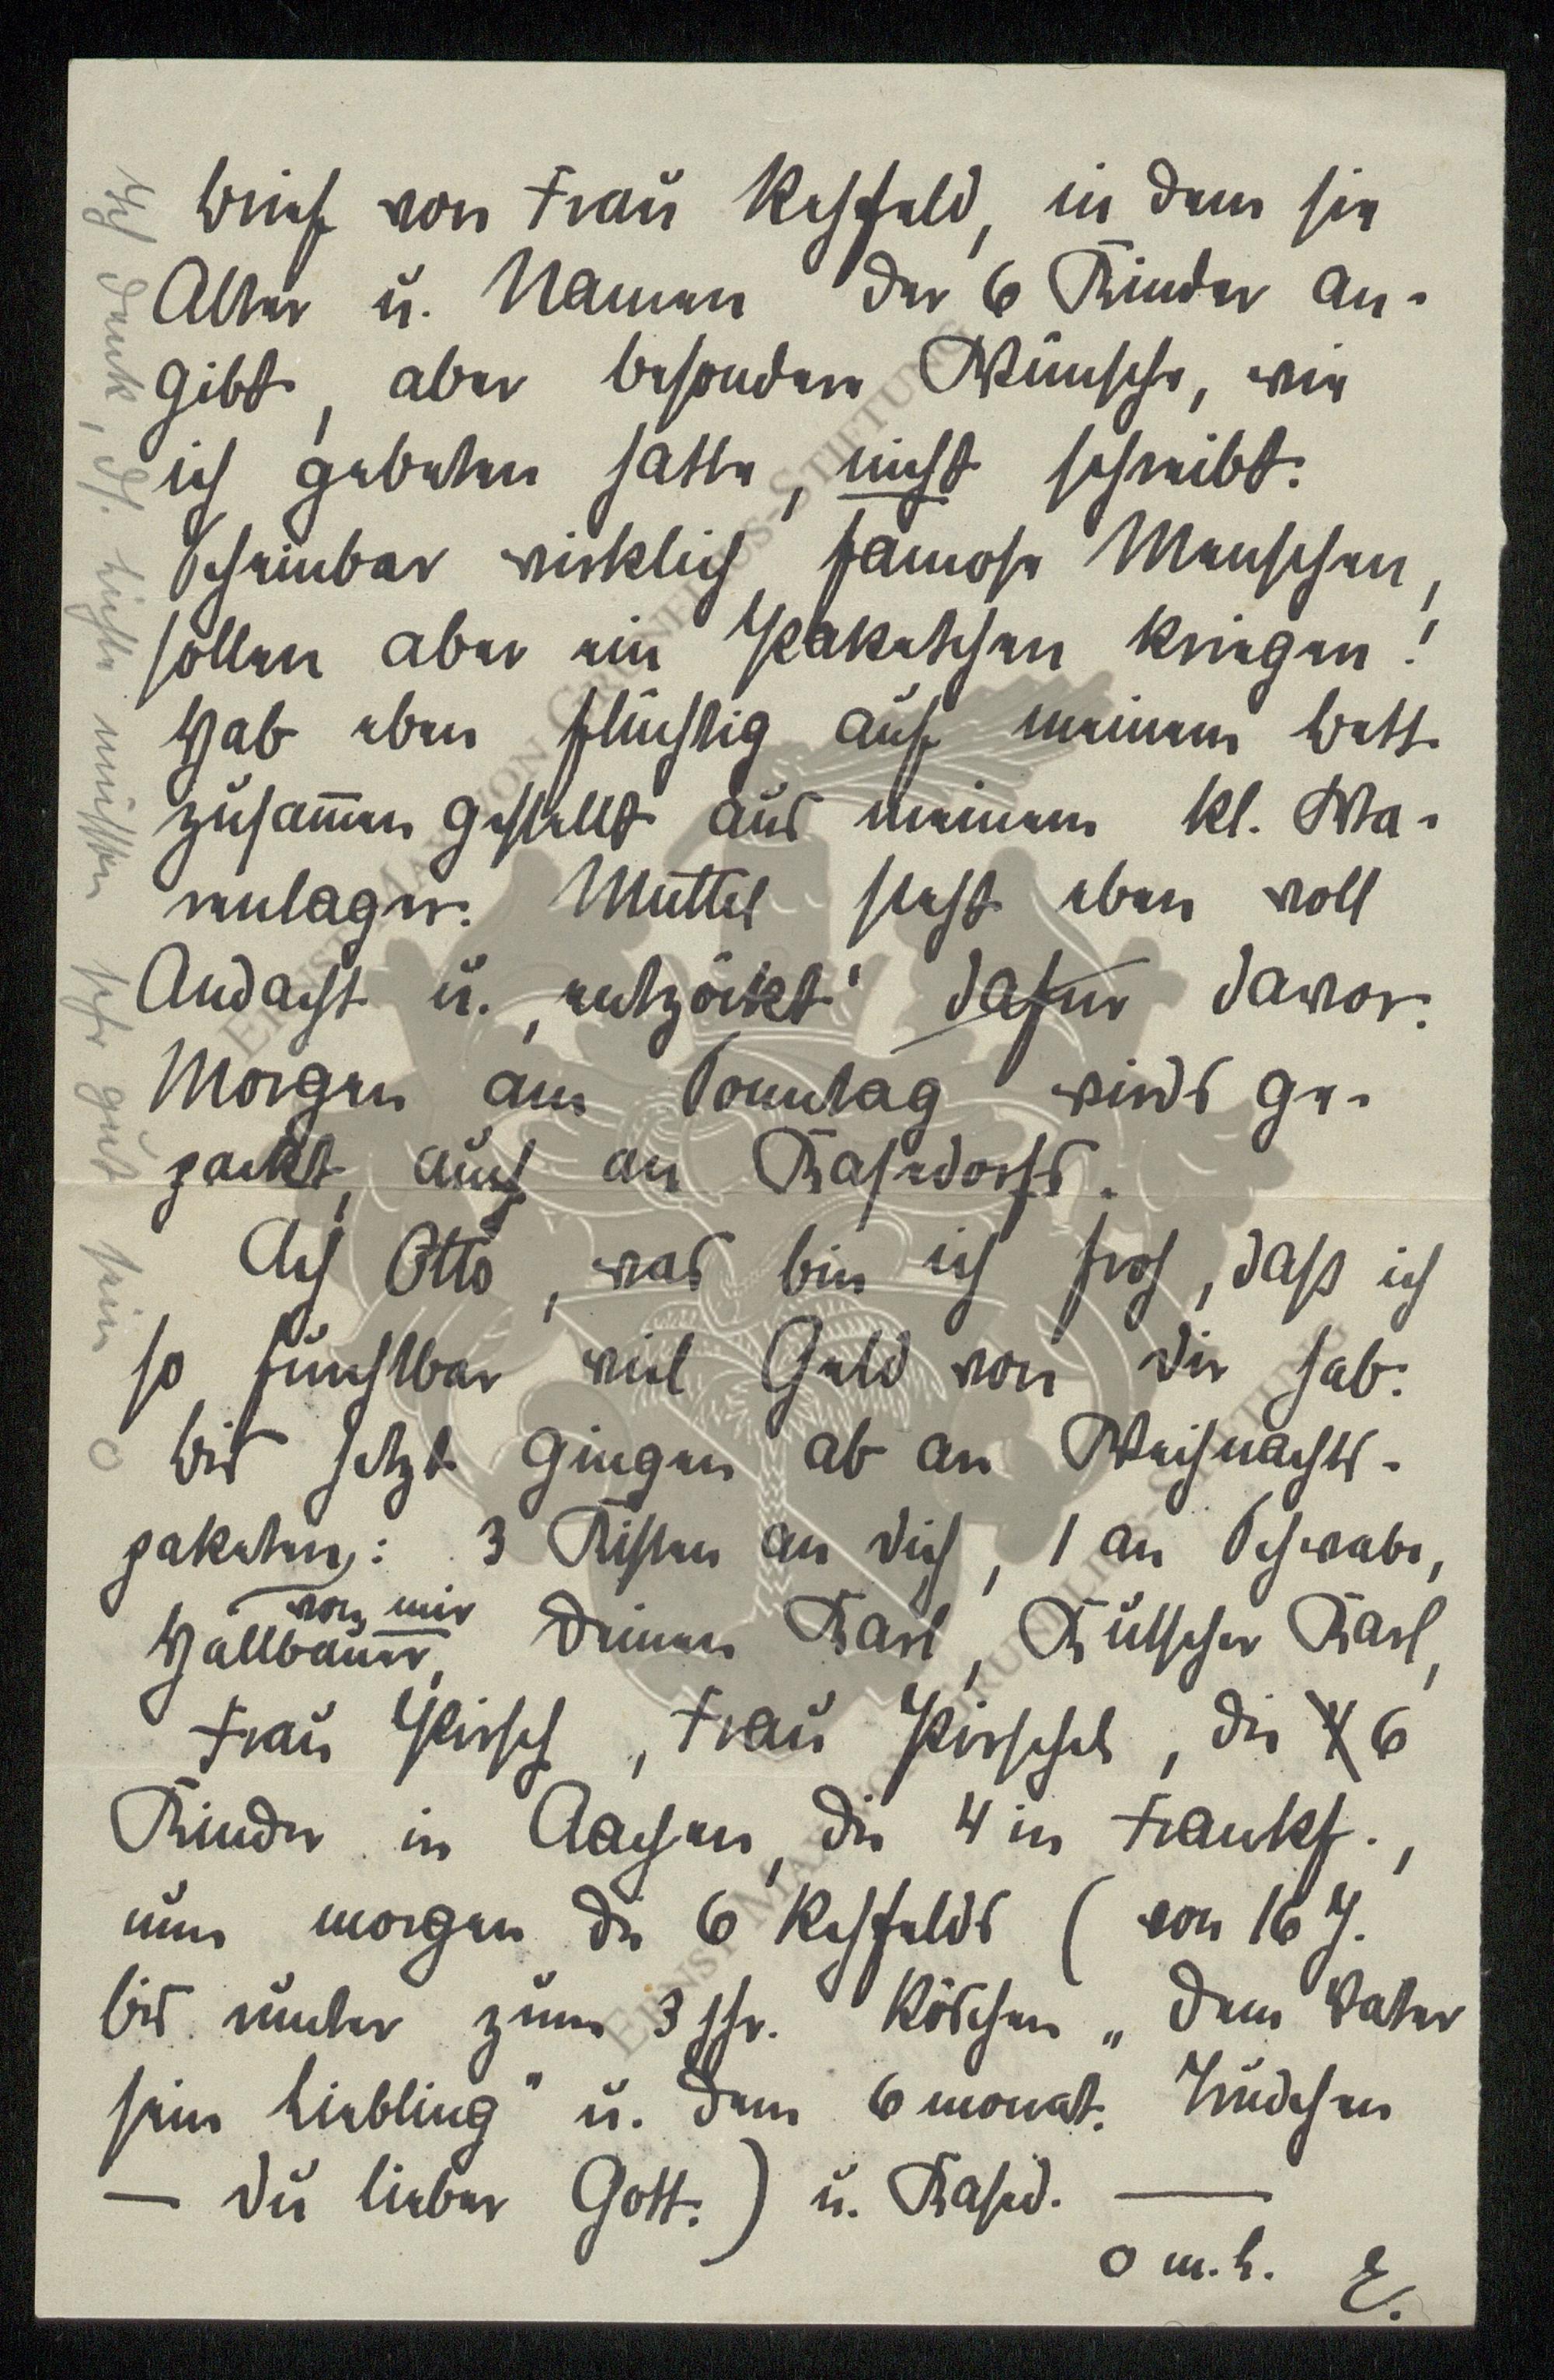 Brief von Frau Rehfeld, in dem sie
Alter u. Namen der 6 Kinder an-
gibt, aber besondere Wünsche, wie
ich gebeten hatte, nicht schreibt.
Scheinbar wirklich famose Menschen,
sollen aber ein Paketchen kriegen!
Hab eben flüchtig auf meinem Bett
zusammen gestellt aus meinem kl. Wa-
renlager. Muttel steht eben voll
Andacht u. „entzöckt" dafür davor.
Morgen am Sonntag wirds ge-
packt, auch an Kasedorfs.
Ach Otto, was bin ich froh, daß ich
so furchtbar viel Geld von Dir hab.
Bis jetzt gingen ab an Weihnachts-
paketen: 3 Kisten an Dich, 1 an Schwabe,
von mir
Hallbauer, Deinen Karl, Kutscher Karl,
Frau Pirsch, Frau Pirschel, die 4 6
Kinder in Aachen, die 4 in Frankf.,
nun morgen die 6 Rehfelds (von 16 J.
bis runter zum 3 jhr. Röschen „dem Vater
sein Liebling" u. dem 6 monat. Trudchen
— Du lieber Gott.) u. Kased. —
o m. L. E.
Ich denk, d. Lichte müssten sehr gut sein o
ERNST MAX VON GRUNELIUS-STIFTUNG
ERNST MAX VON GRUNELIUS-STIFTUNG